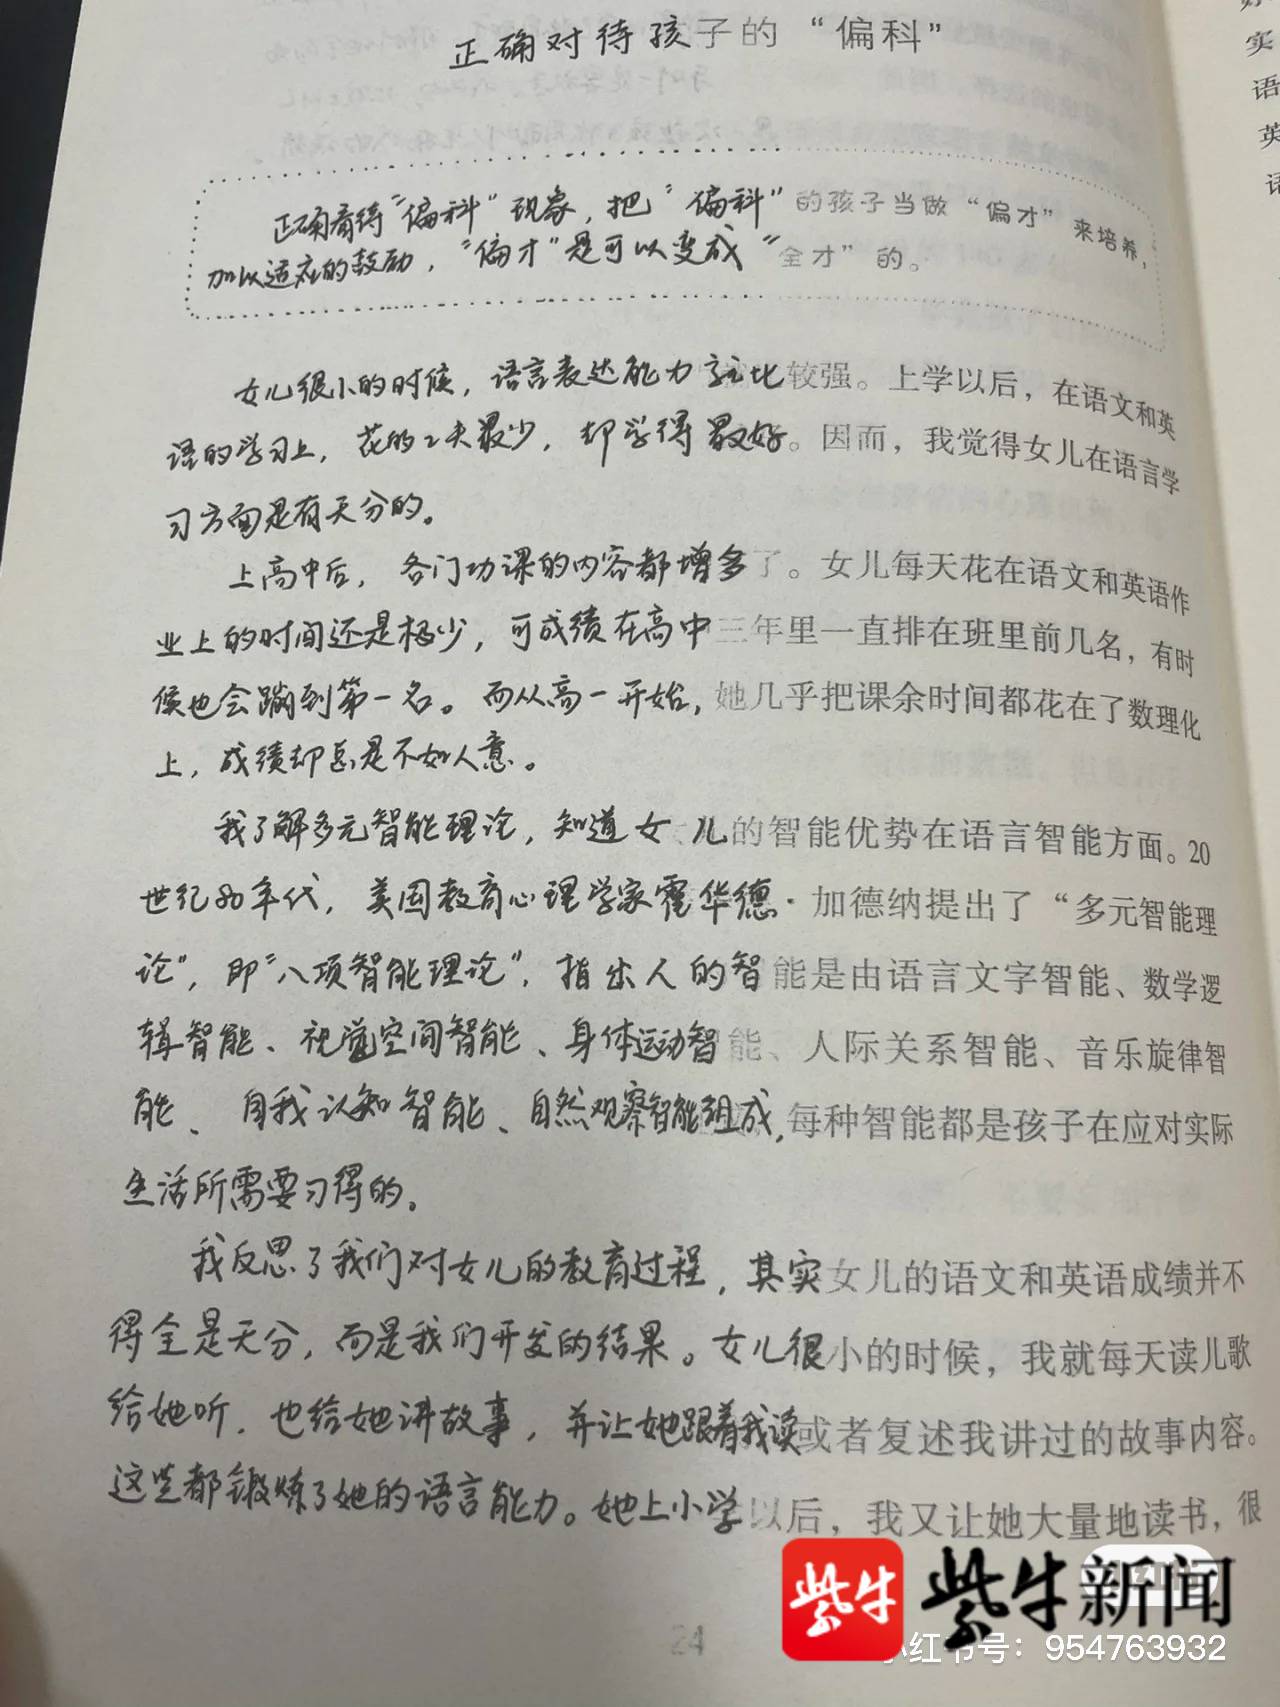 正确对待孩子的“偏科”
正确看待“偏科”现象，把“偏科”的孩子当做“偏才”来培养，
加以适应的鼓励，“偏才”是可以变成“全才”的。
女儿很小的时候，语言表达能力就比较强。上学以后，在语文和英
语的学习上，花的工夫最少，却学得最好。因而，我觉得女儿在语言学
习方面是有天分的。
上高中后，各门功课的内容都增多了。女儿每天花在语文和英语作
业上的时间还是极少，可成绩在高中三年里一直排在班里前几名，有时
候也会蹦到第一名。而从高一开始，她几乎把课余时间都花在了数理化
上，成绩却总是不如人意。
我了解多元智能理论，知道女儿的智能优势在语言智能方面。20
世纪80年代，美国教育心理学家霍华德·加德纳提出了“多元智能理
论”，即“八项智能理论”，指出人的智能是由语言文字智能、数学逻
辑智能、视觉空间智能、身体运动智能、人际关系智能、音乐旋律智
能、自我认知智能、自然观察智能组成，每种智能都是孩子在应对实际
生活所需要习得的。
我反思了我们对女儿的教育过程，其实女儿的语文和英语成绩并不
得全是天分，而是我们开发的结果。女儿很小的时候，我就每天读儿歌
给她听，也给她讲故事，并让她跟着我读或者复述我讲过的故事内容。
这些都锻炼了她的语言能力。她上小学以后，我又让她大量地读书，很
24
紫牛 紫牛新闻
小红书号：954763932
实
语
英
语